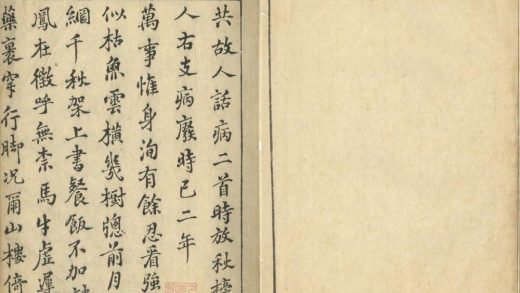 共故人話病二首時放秋榜
人右支病廢時已二年
萬事惟身洵有餘忍看強
似枯魚雲橫幾樹牕前月
綑千秋架上書餐飯不加
鳳在徵呼無柰馬牛虛遲
藥裹穿行脚况爾山樓倚